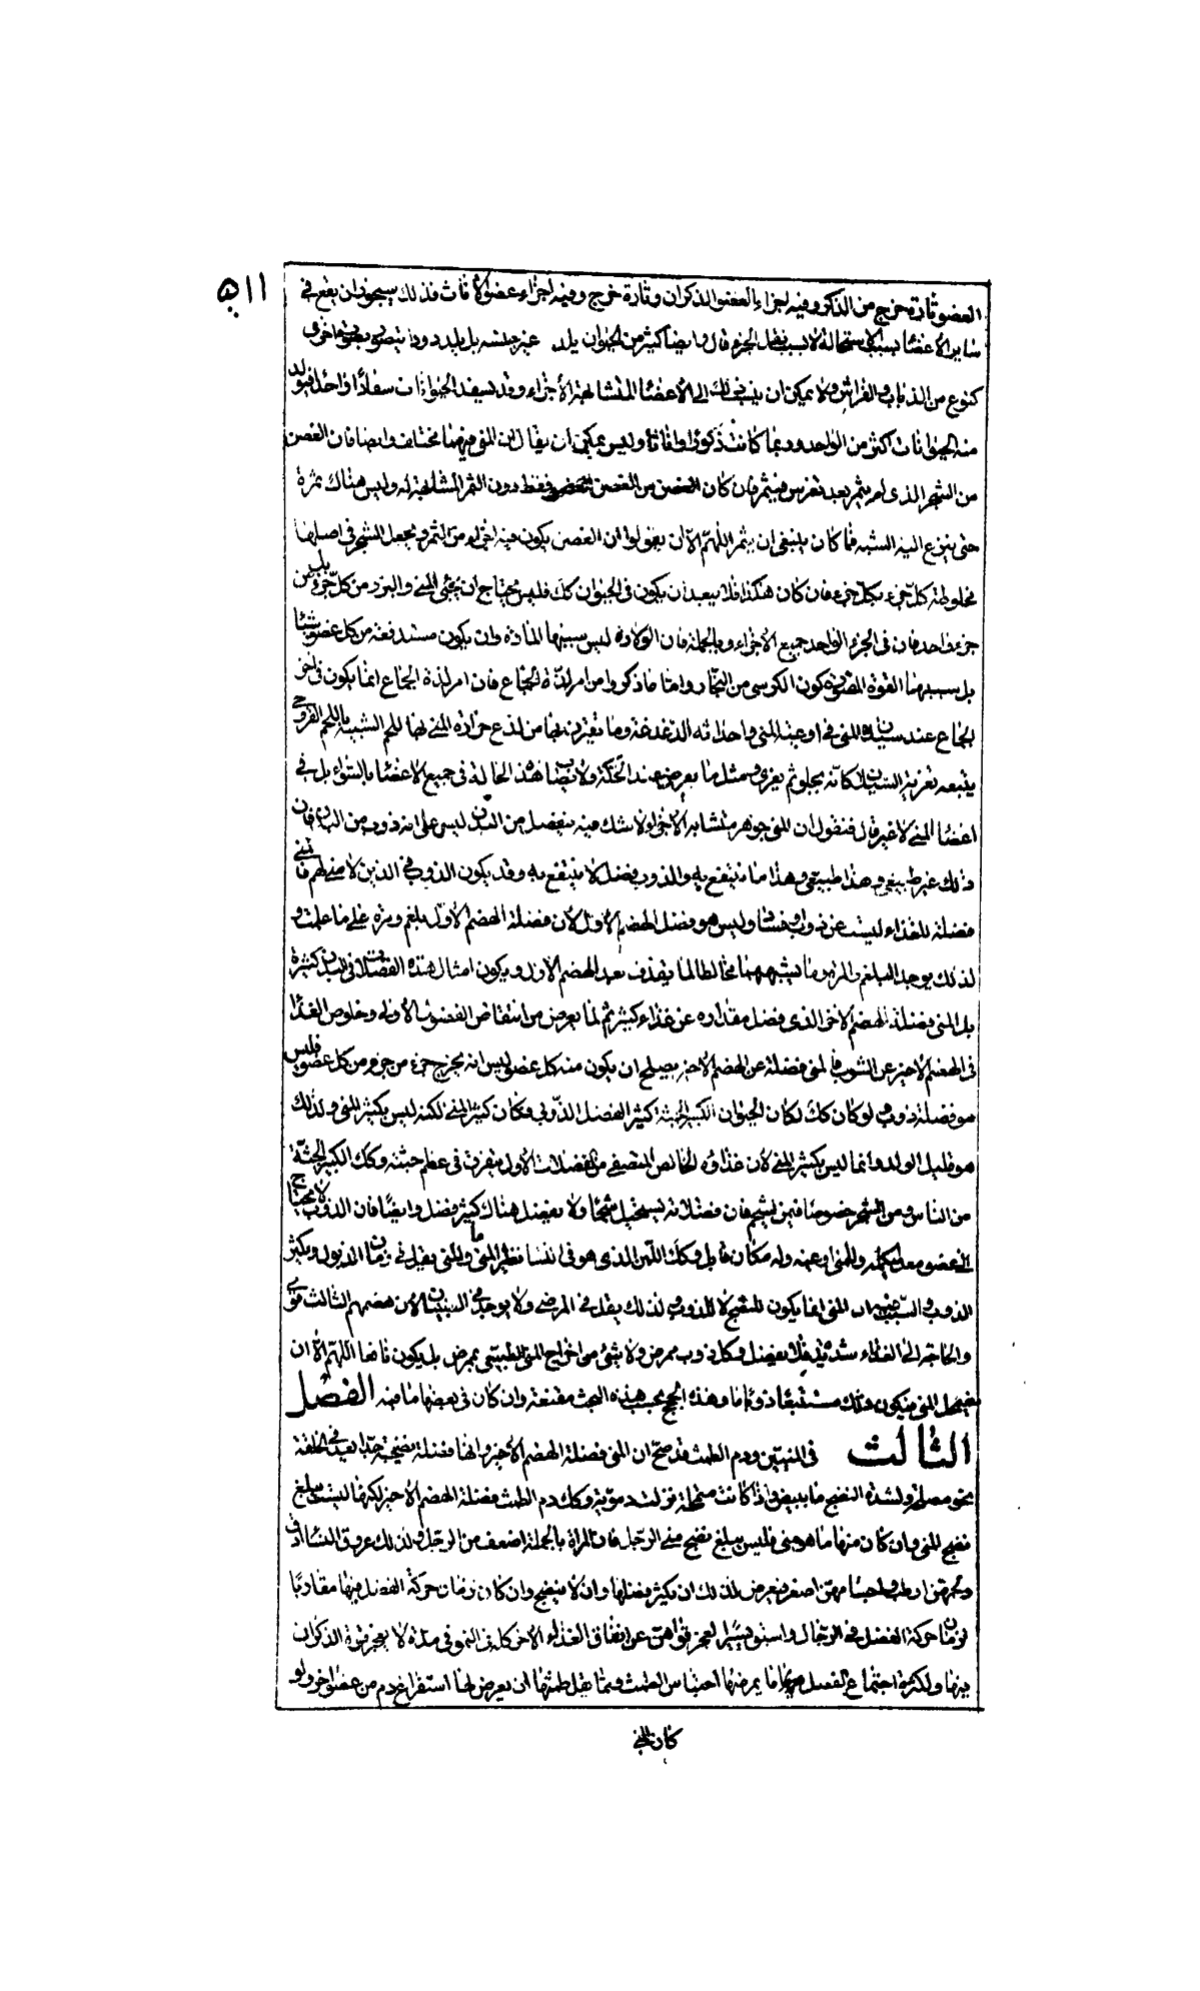 ٥١١
العضو تارة خرج من الذكر وفيه اجزاء العضو الذكران وتارة خرج وفيه اجزاء عضو الاناث فذلك سيجوز ان يقع في
ساير الأعضا بسبب الاستحالة لا بسبب الجزء قال وايضا كثير من الحيوان يلد غير جنسه بل يلد دودا
كنوع من الذباب والفراش ولا يمكن ان ينسب ذلك الى الاعضا المتشابهة الأجزاء وقد يسفد الحيوانات سفادا واحدا فيولد
منه الحيوانات اكثر من الواحد وربما كانت ذكورا واناثا وليس يمكن ان يقال ان المنى فيهما مختلف وايضا فان الغصن
من الشجر الذى لم يثمر بعد تغرس فيثمر فان كان الغصن من الغصن فقط دون الثمر المشابهة له وليس هناك ثمرة
حتى ينزع اليه الشبه فما كان ينبغى ان يثمر اللهم الا ان يقولوا ان الغصن يكون فيه اجزاء من الثمر ويجعل الشجر فى اصلها
مخلوطة كل جزء بكل جزء فان كان هكذا فلا يبعد ان يكون فى الحيوان كك فليس يحتاج ان يجئ المنى والبزر من كل جزء بل من
جزء واحد فان فى الجزء الواحد جميع الاجزاء وبالجملة فان الولادة ليس سببها المادة وان يكون مستدفعة من كل عضو شيئا
بل سببها القوة المصورة كون الكرسى من النجار واما ما ذكروا من امر لذة الجماع فان امر لذة الجماع انما يكون فى اخر
الجماع عند سيلان المنى فى اوعية المنى واحداثه الدغدغة وما يقترن بها من لذع حرارة المنى لها للحم الشبيه باللحم القروحى
يتبعه تغرية السيلان كانه يجلو ثم يغرى ومثل ما يعرض عند الحكة ولا يصاب هذه الحالة فى جميع الاعضا بالسواء بل فى
اعضا المنى لا غير قال فنقول ان المنى جوهر متشابه الاجزاء ولا شك فيه ينفصل من البدن ليس على انه ذوب من البدن فان
ذلك غير طبيعى وهذا طبيعى وهذا ما ينتفع به والذوب فضل لا ينتفع به وقد يكون الذوب فى الذين لا منى لهم فالمنى
فضلة للغذاء ليست عن ذوب وفساد وليس هو فضل الهضم الاول لان فضلة الهضم الاول بلغم ومرة على ما علمت و
لذلك يوجد البلغم والمرة وما يشبههما مخالطا لما يقذف بعد الهضم الاول ويكون امثال هذه الفضلات فى البدن كثيرة
بل المنى فضلة الهضم الأخر الذى فضل مقداره عن غذاء كثير ثم لما يعرض من انتفاض الفضول الأولى وخلوص الغذا
فى الهضم الاخير عن الشوب فالمنى فضلة عن الهضم الاخير يصلح ان يكون منه كل عضو ليس انه يخرج جزء من جزء من كل عضو فليس
هو فضلة ذوب ولو كان كك لكان الحيوان الكبير الجثة كثير الفضل الذوبى وكان كثير المنى لكنه ليس بكثير المنى ولذلك
هو قليل الولد وانما ليس بكثير المنى لان غذاؤه الخالص المتصفى من الفضلات الأول متفرق فى عظم جثته وكك الكبير الجثة
من الناس ومن الشجر خصوصا فيمن يشحم فان فضلاته يستحيل شحما ولا يفضل هناك كثير فضل وايضا فان الذوب لا يحتاج
الى عضو معد لجمعه والمنى وعيه وله مكان قابل وكك اللبن الذى هو فى النسا نظير المنى والمنى يقل فى زمان الذبول ويكثر
الذوب والسبب فيه ان المنى انما يكون للنضج لا للذوب ولذلك يقل فى المرضى ولا يوجد فى الصبيان لان هضمهم الثالث قوى
والحاجة الى الغذاء شديدة فلا يفضل وكل ذوب ممرض ولا شئ من اخراج المنى الطبيعى بممرض بل يكون نافعا اللهم الا ان
المنى فيكون ذلك مستتبعا ذوبا وهذه الحجج بحسب هذه البحث مقنعة وان كان فى بعضها ما فيه الفصل
الثالث فى المنيين ودم الطمث قد صح ان المنى فضلة الهضم الأخير وانها فضلة نضيجة جدا بعيد فى الخلقة
نحو مصلح ولشدة النضج ما يبيض واذا كانت منحلة نزلت دموية وكك دم الطمث فضلة الهضم الاخير لكنها ليست يبلغ
نضج المنى وان كان منها ما هو منى فليس يبلغ نضج منى الرجل فان المرأة بالجملة اضعف من الرجل ولذلك عروق النسا ادق
ولحمهن ارطب واجسامهن اصغر فيعرض لذلك ان يكثر فضلها وان لا ينضج وان كان زمان حركة الفضل فيها مقاربا
لزمان حركة الفضل فى الرجال واسبق يسيرا لعجز قواهن عن انفاق الغذاء الاخر كله فى النمو فى مدة لا يعجز قوة الذكران
فيها ولكثرة اجتماع الفضل فيها ما يمرضها احتباس الطمث ومما يقل طمثها ان يعرض لها استفراغ دم من عضو اخر ولو
كان المنى